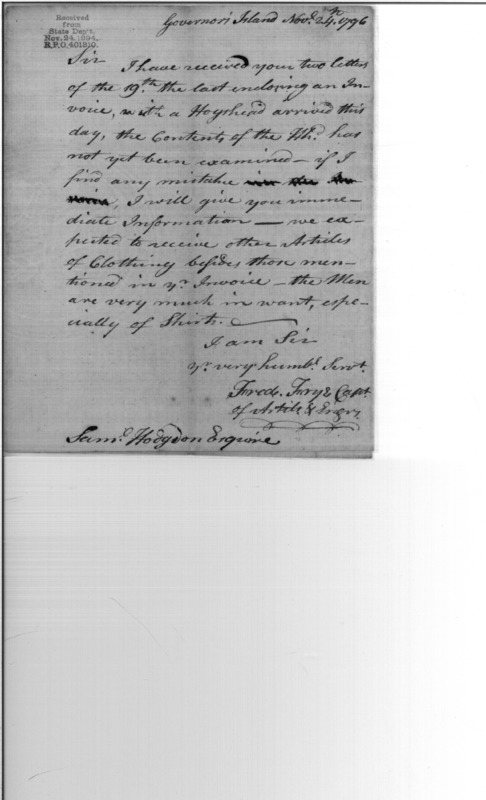 Received
from
State Dep't.
Nov. 24, 1894.
R.P.O. 401210.
Governor's Island Novr. 24th. 1796
Sir
I have received your two letters
of the 19th. the last enclosing an In-
voice, with a Hogshead arrived this
day, the Contents of the Hhd. has
not yet been examined – if I
find any mistake in the In-
voice, I will give you imme-
diate Information – we ex-
pected to receive other Articles
of Clothing besides those men-
tioned in yr. Invoice – the Men
are very much in want, espe-
cially of Shirts.
I am Sir
Yr. very humbl. Servt.
Fredk. Frye Capt.
of Artils. & Engrs.
Saml. Hodgdon Esquire